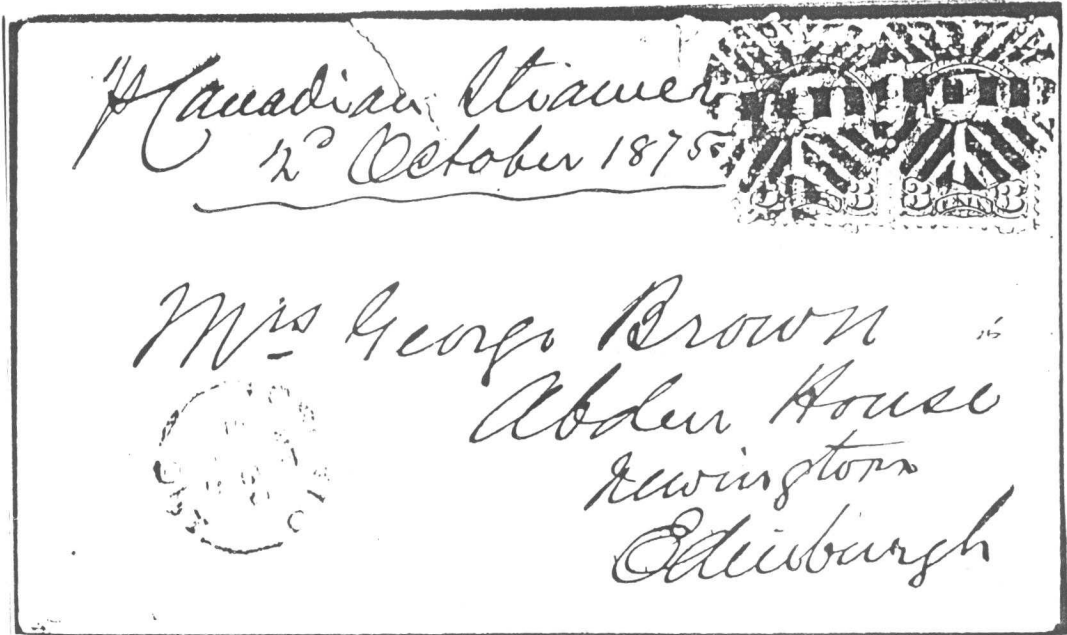 p Canadian Steamer
2ᵈ October 1875
3 CENTS 3
Mrs George Brown
Abden House
Newington
Edinburgh